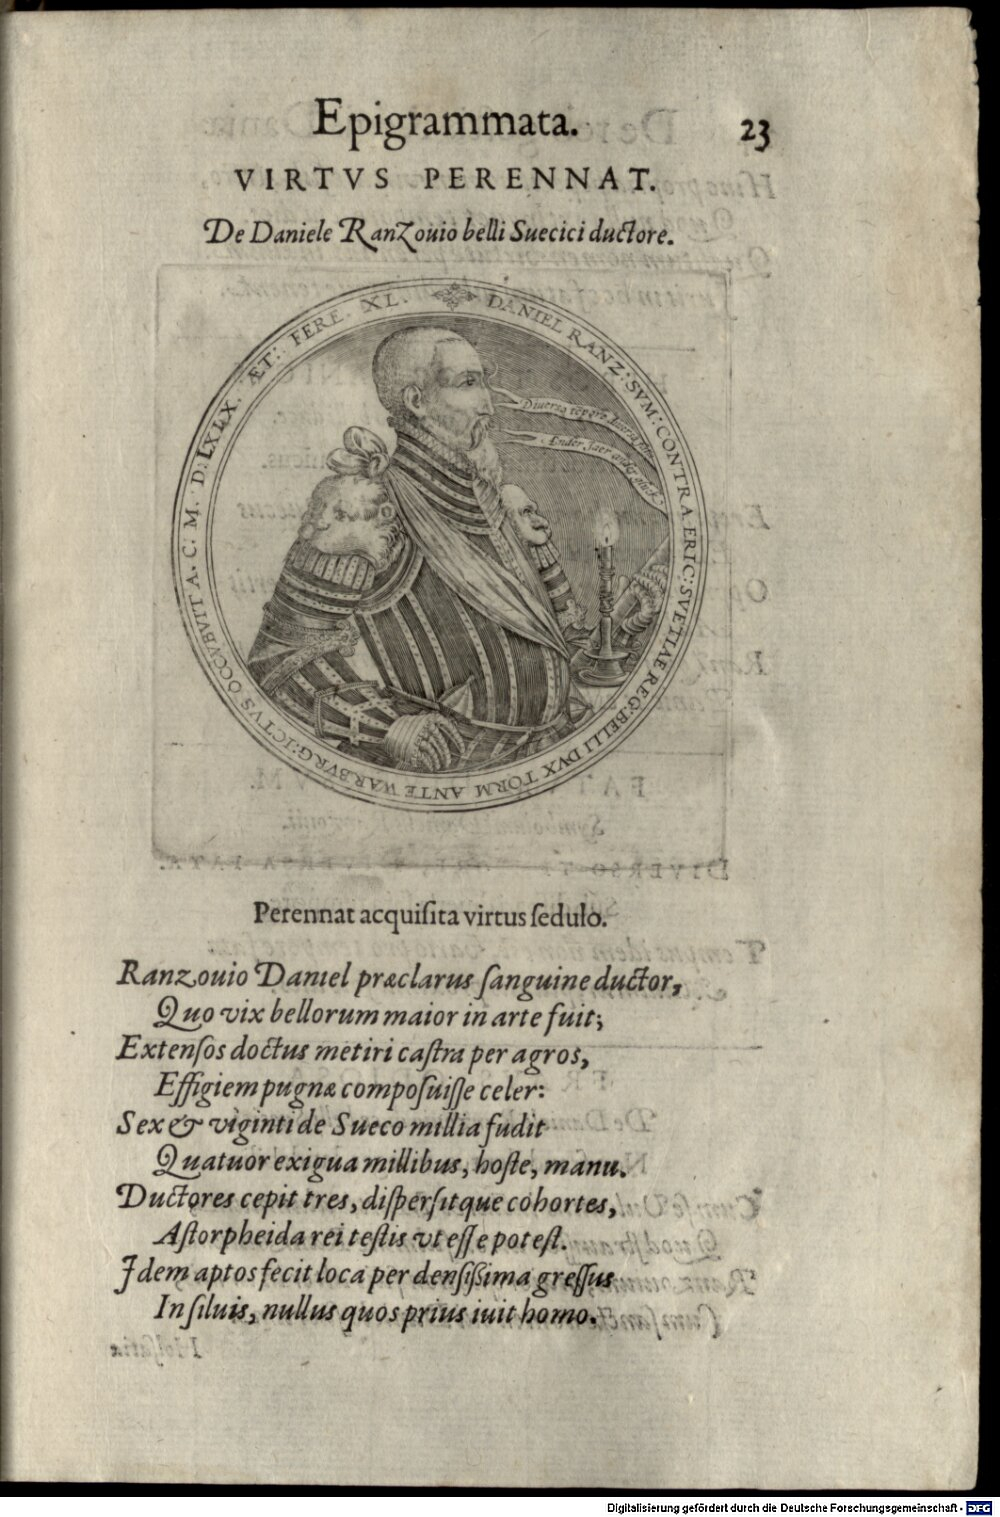 Epigrammata. 23
VIRTVS PERENNAT.
De Daniele Ranzouio belli Suecici ductore.
DANIEL RANZ: SVM: CONTRA ERIC: SVETIAE REG: BELLI DVX TORM ANTE WARBVRG: ICTVS OCCVBVIT A. C. M. D: LXLX. ÆT: FERE. XL.
Perennat acquiſita virtus ſedulò.
Ranzouio Daniel præclarus ſanguine ductor,
Quo vix bellorum maior in arte fuit;
Extenſos doctus metiri caſtra per agros,
Effigiem pugnæ compoſuiſſe celer:
Sex & viginti de Sueco millia fudit
Quatuor exigua millibus, hoſte, manu.
Ductores cepit tres, diſperſitque cohortes,
Aſtorpheida rei teſtis vt eſſe poteſt.
Idem aptos fecit loca per denſiſſima greſſus
In ſiluis, nullus quos prius iuit homo.
Digitalisierung gefördert durch die Deutsche Forschungsgemeinschaft - DFG